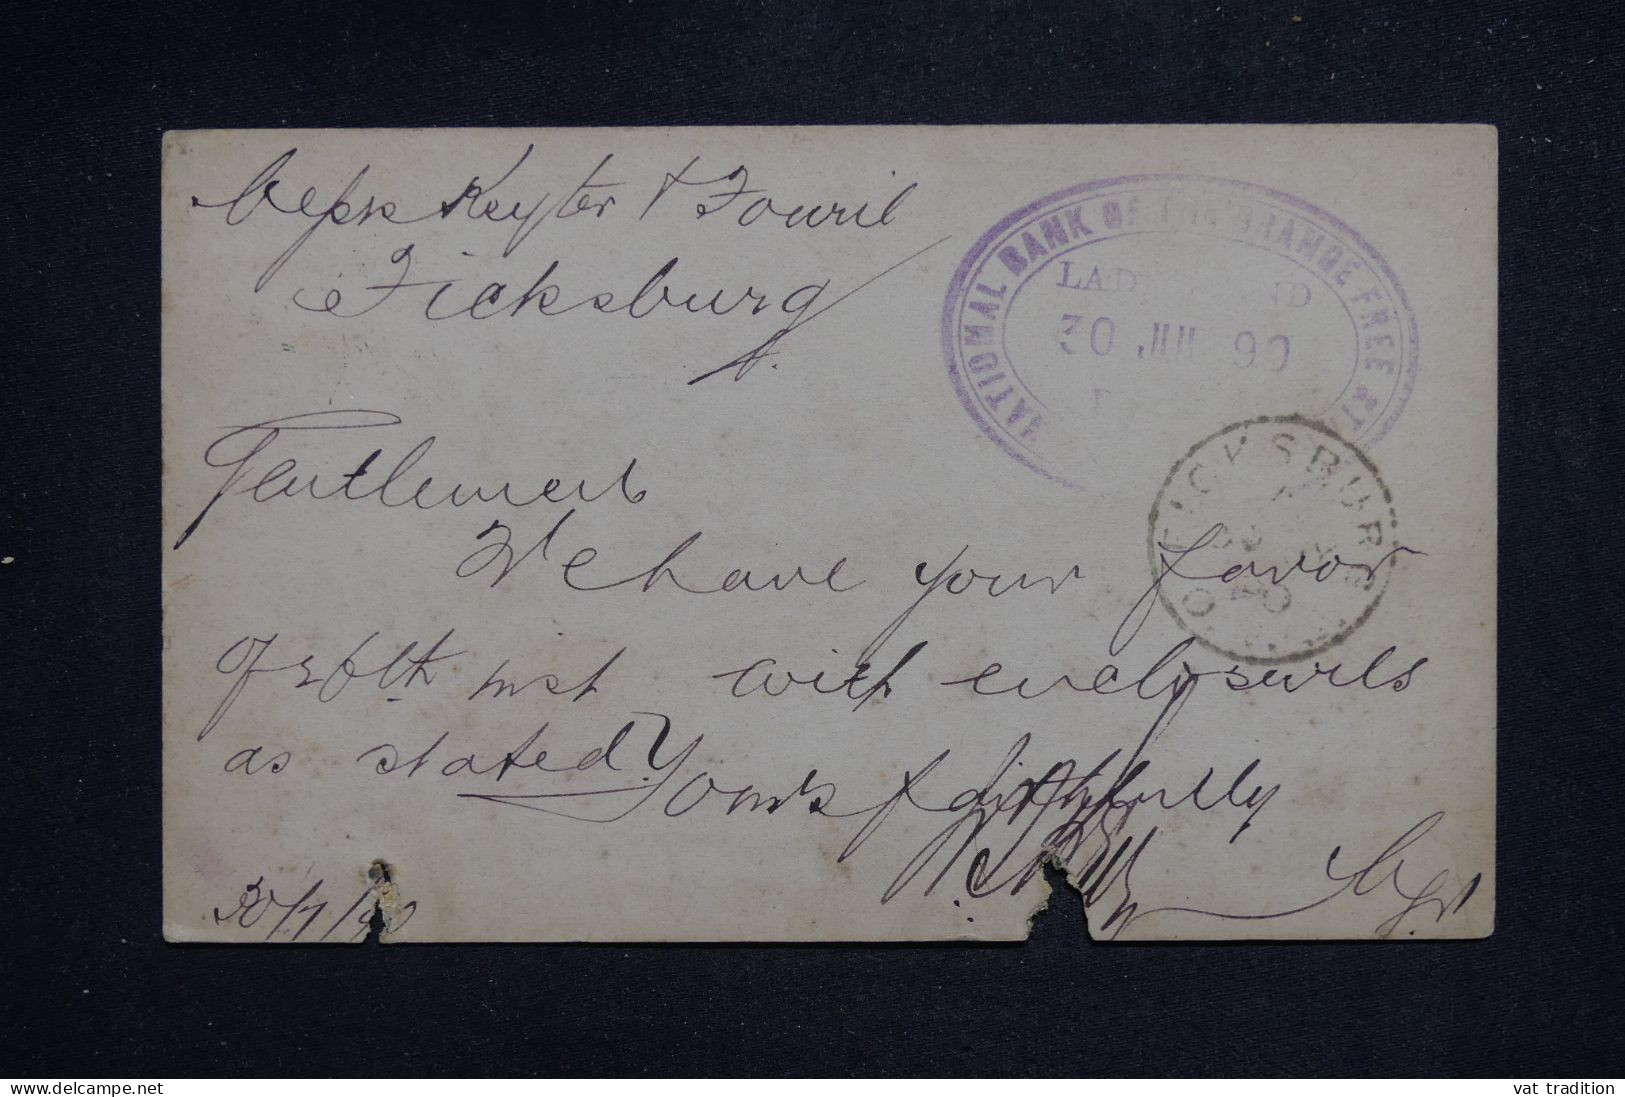 Messrs Kuyter & Fourie
Ficksburg
NATIONAL BANK OF THE ORANGE FREE
30 JUL 90
FICKSBURG
Gentlemen
We have your favor
of 26th inst with enclosures
as stated
Yours faithfully
Mgr
30/7/90
www.delcampe.net
vat tradition